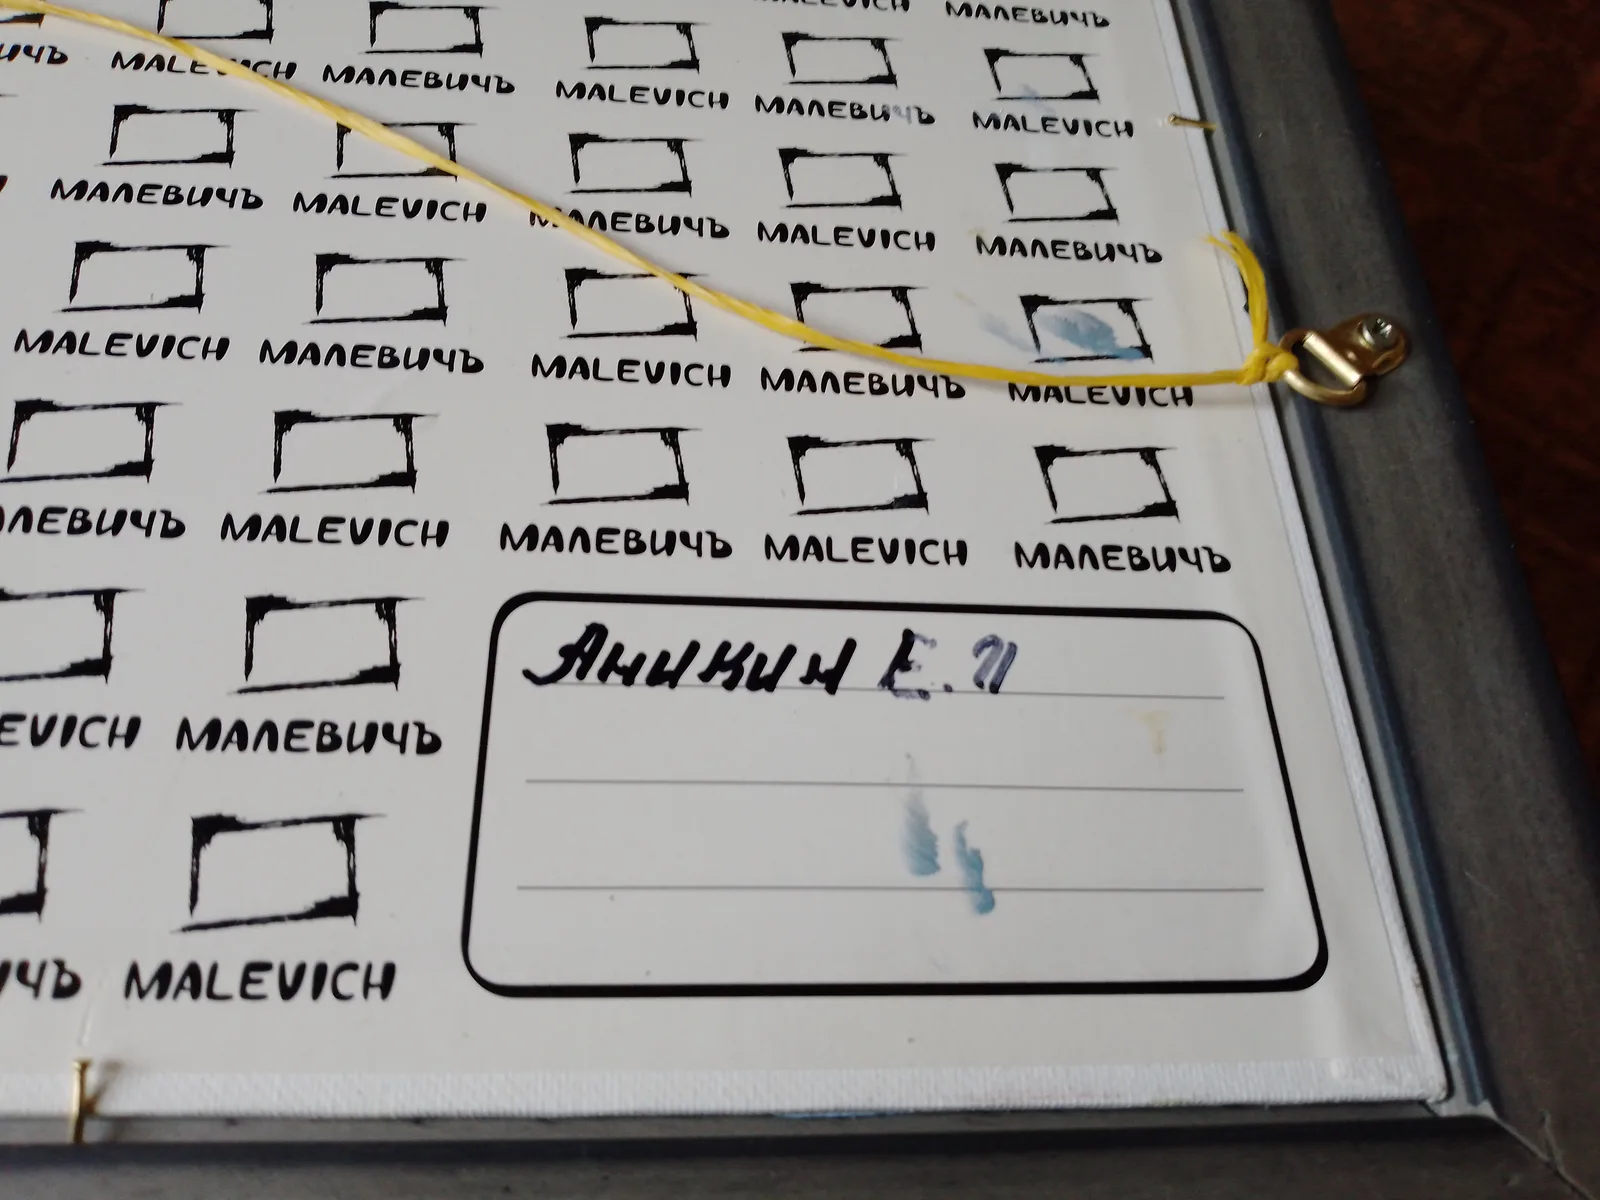 МАЛЕВИЧЪ
ИЧЪ MALEVICH МАЛЕВИЧЪ MALEVICH МАЛЕВИЧЪ MALEVICH
МАЛЕВИЧЪ MALEVICH МАЛЕВИЧЪ MALEVICH МАЛЕВИЧЪ
MALEVICH МАЛЕВИЧЪ MALEVICH МАЛЕВИЧЪ MALEVICH
АЛЕВИЧЪ MALEVICH МАЛЕВИЧЪ MALEVICH МАЛЕВИЧЪ
EVICH МАЛЕВИЧЪ
ИЧЪ MALEVICH
Аникин Е.П